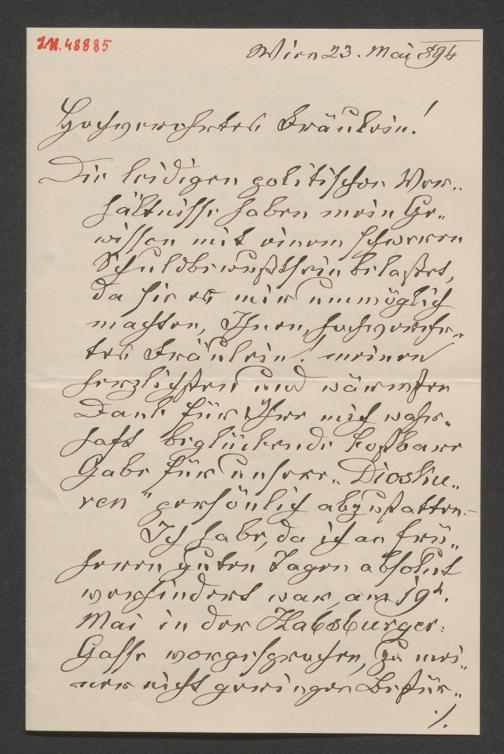 I.N. 48885
Wien 23. Mai 894
Hochverehrtes Fräulein!
Die leidigen politischen Ver-
hältnisse haben mein Ge-
wissen mit einem schweren
Schuldbewußtsein belastet,
da sie es mir unmöglich
machten, Ihnen, hochverehr-
tes Fräulein! meinen
herzlichsten und wärmsten
Dank für Ihre mich wahr-
haft beglückende kostbare
Gabe für unsere „Diosku-
ren" persönlich abzustatten.-
Ich habe, da ich an frü-
heren guten Tagen absolut
verhindert war, am 19t.
Mai in der Habsburger-
Gasse vorgesprochen, zu mei-
ner nicht geringen Bestür-
./.